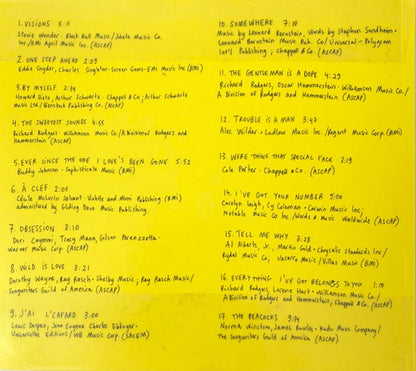 1. VISIONS 5:11
Stevie Wonder - Black Bull Music/Jobete Music Co.
Inc/EMI April Music Inc (ASCAP)
2. ONE STEP AHEAD 2:09
Eddie Snyder, Charles Singleton - Screen Gems - EMI Music Inc (BMI)
3. BY MYSELF 2:34
Howard Dietz, Arthur Schwartz - Chappell & Co; Arthur Schwartz
Music Ltd/Nonstock Publishing Co. (ASCAP)
4. THE SWEETEST SOUNDS 4:55
Richard Rodgers - Williamson Music Co/A Division of Rodgers and
Hammerstein (ASCAP)
5. EVER SINCE THE ONE I LOVE'S BEEN GONE 5:52
Buddy Johnson - Sophisticate Music (BMI)
6. À CLEF 2:05
Cécile McLorin Salvant - Violette and Mimi Publishing (BMI)
administered by Gliding Dove Music Publishing.
7. OBSESSION 3:10
Dori Caymmi, Tracy Mann, Gilson Peranzzetta -
Warner Music Corp. (ASCAP)
8. WILD IS LOVE 3:21
Dorothy Wayne, Ray Rasch - Shelby Music; Ray Rasch Music/
Songwriters Guild of America (ASCAP)
9. J'AI L'CAFARD 3:00
Louis Despax, Jean Eugene Charles Eblinger -
Universelles Editions/WB Music Corp. (SACEM)
10. SOMEWHERE 7:10
Music by Leonard Bernstein, Words by Stephen Sondheim -
Leonard Bernstein Music Pub. Co/Universal - Polygram
Int'l Publishing; Chappell & Co. (ASCAP)
11. THE GENTLEMAN IS A DOPE 4:29
Richard Rodgers, Oscar Hammerstein - Williamson Music Co./
A Division of Rodgers and Hammerstein (ASCAP)
12. TROUBLE IS A MAN 3:47
Alec Wilder - Ludlow Music Inc./Regent Music Corp. (BMI)
13. WERE THINE THAT SPECIAL FACE 3:19
Cole Porter - Chappell & Co. (ASCAP)
14. I'VE GOT YOUR NUMBER 9:00
Carolyn Leigh, Cy Coleman - Carwin Music Inc/
Notable Music Co Inc/Words & Music Worldwide (ASCAP)
15. TELL ME WHY 3:28
Al Alberts, Jr., Martin Gold - Chrysalis Standards Inc/
Rydal Music Co; Vacero's Music/Villas Music (BMI)
16. EVERYTHING I'VE GOT BELONGS TO YOU 1:10
Richard Rodgers, Lorenz Hart - Williamson Music Co/
A Division of Rodgers and Hammerstein; Chappell & Co. (ASCAP)
17. THE PEACOCKS 9:34
Norma Winstone, James Rowles - Kudu Music Company/
The Songwriters Guild of America (ASCAP)